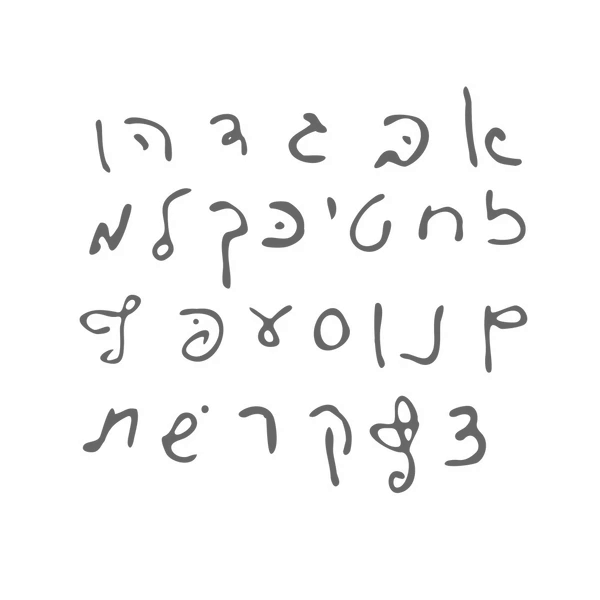 א בּ ג ד ה ו
ז ח ט י כּ ך ל מ
ם נ ן ס ע פּ ף
צ ץ ק ר שׁ ת